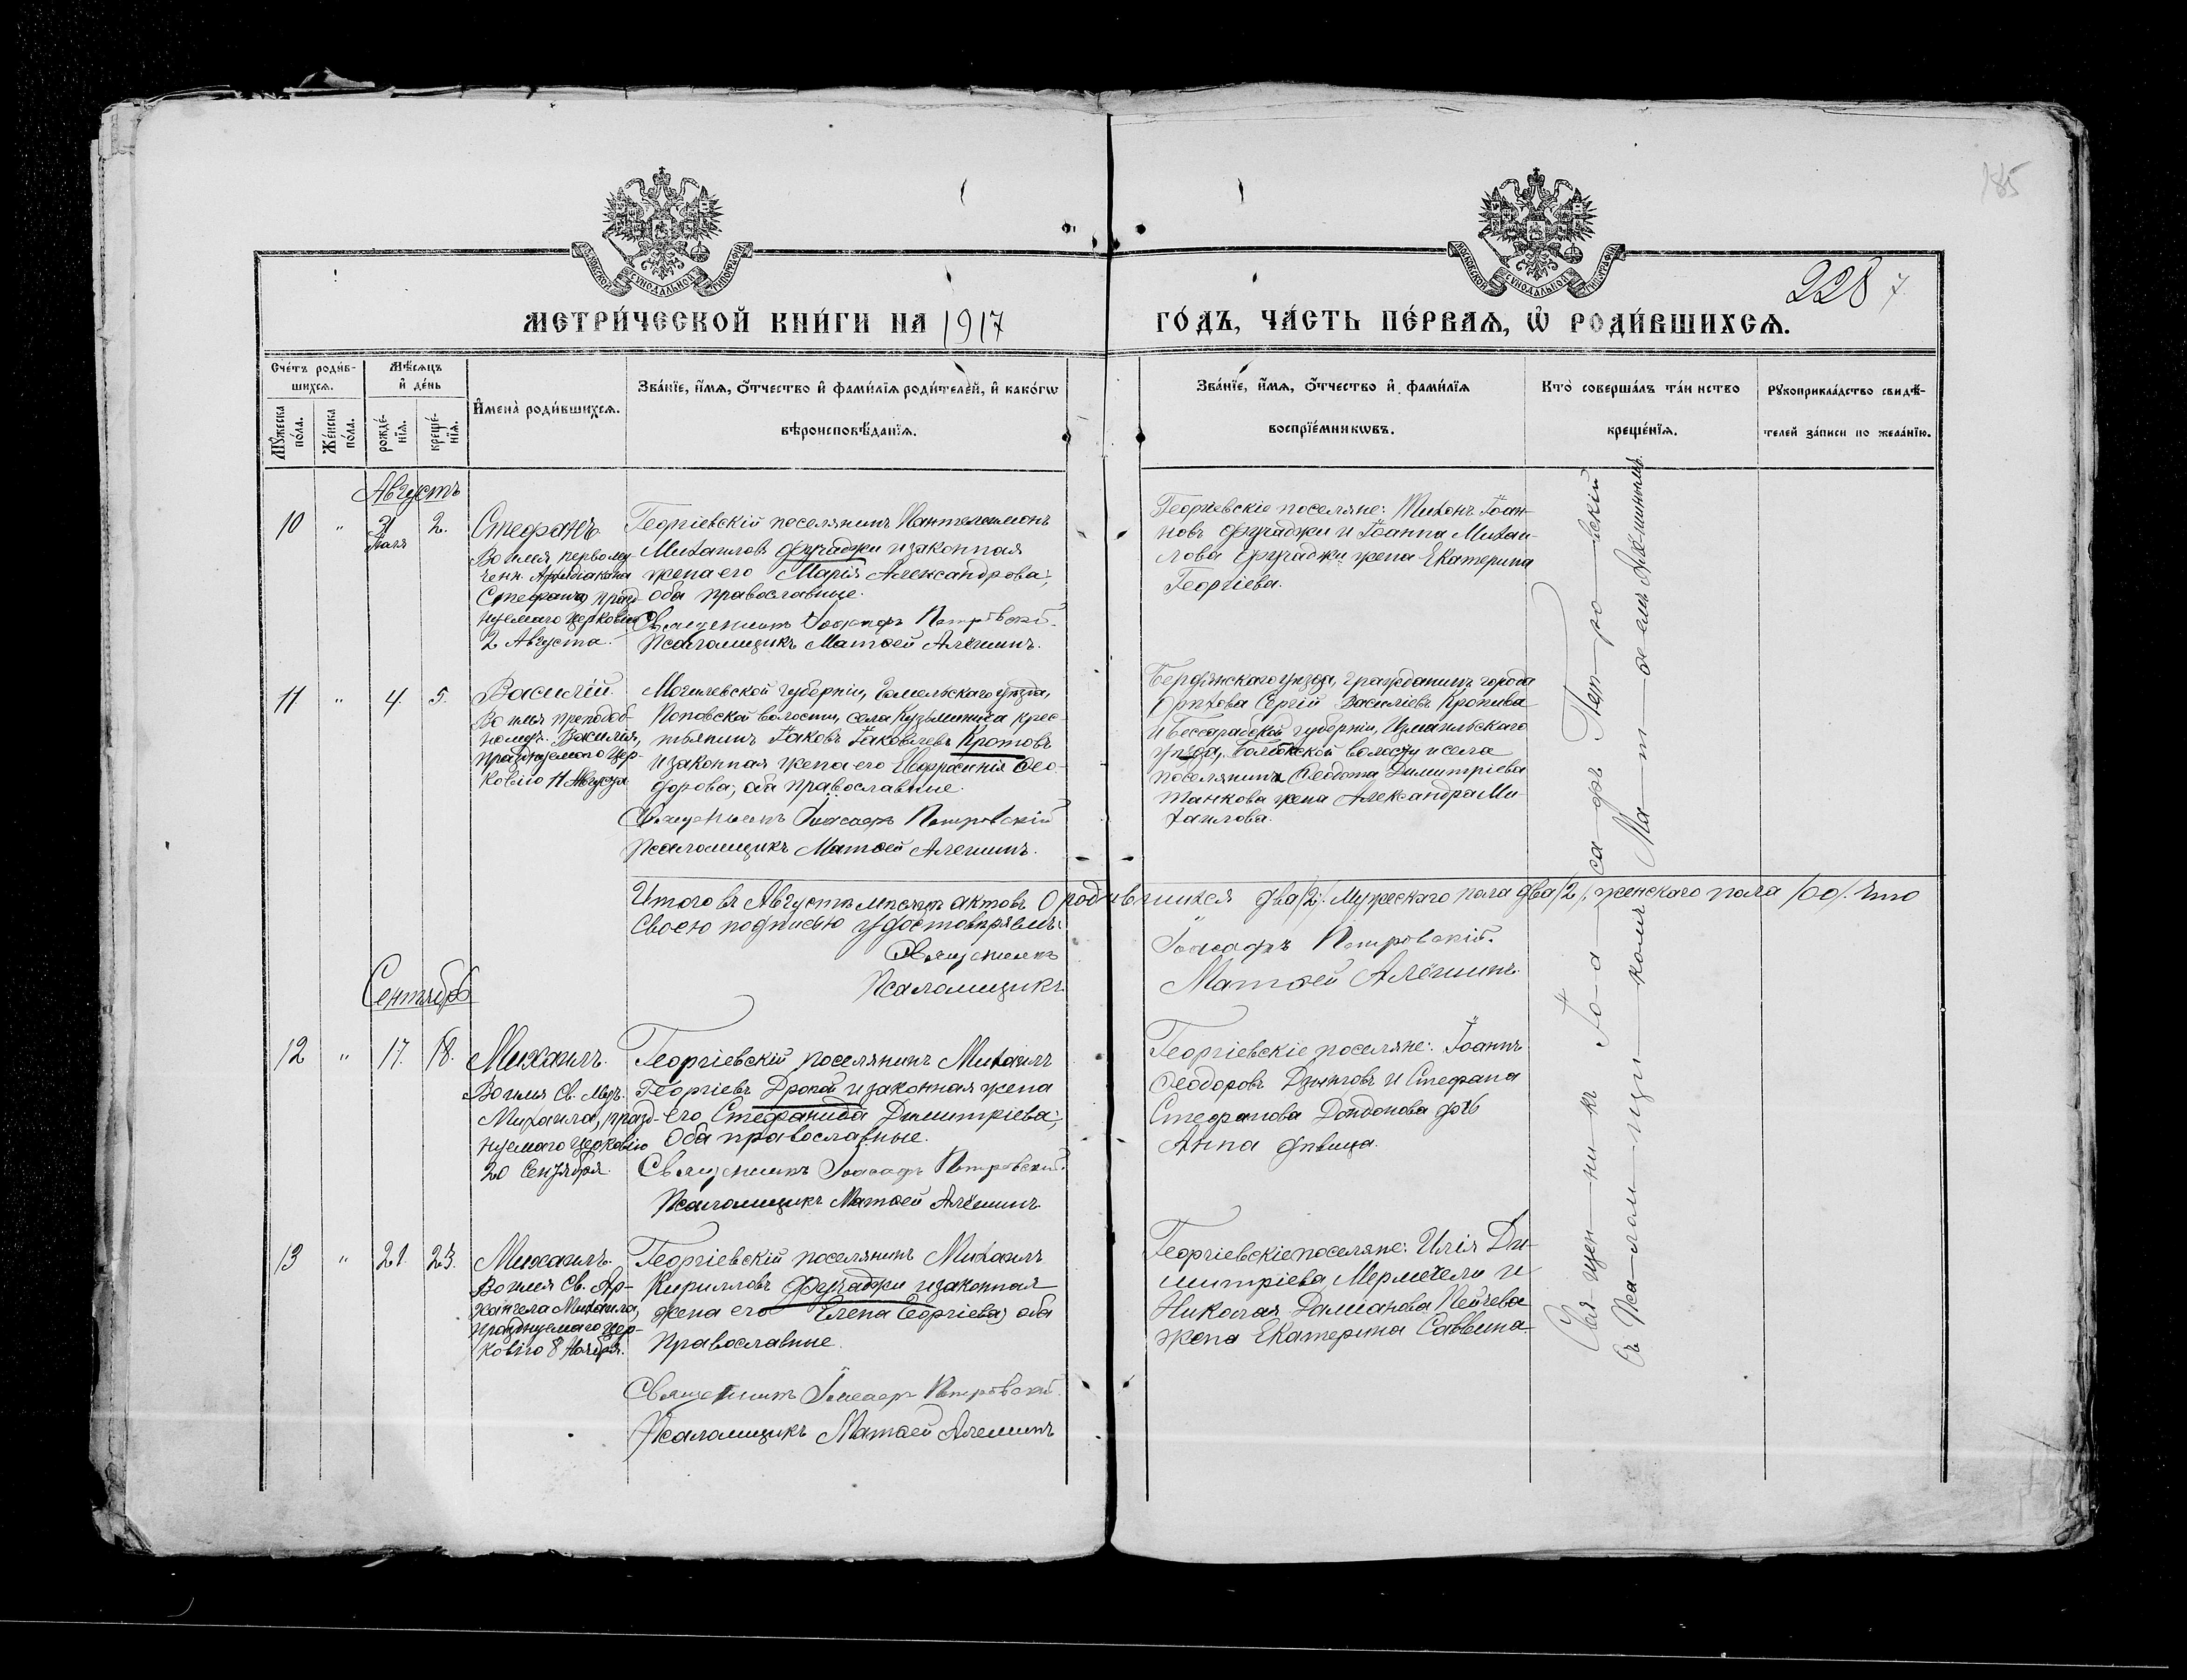 185
МОСКОВСКОЙ СѴНОДАЛЬНОЙ ТИПОГРАФІИ
МОСКОВСКОЙ СѴНОДАЛЬНОЙ ТИПОГРАФІИ
228
МЕТРИ́ЧЕСКОЙ КНИ́ГИ НА 1917 ГО́ДЪ, ЧА́СТЬ ПЕ́РВАЯ, Ѡ РОДИ́ВШИХСЯ.
Сче́тъ роди́вшихся.
Мѣ́сяцъ и де́нь
Мꙋ́жеска по́ла.
Же́нска по́ла.
рожде́нїя.
креще́нїя.
И҆мена̀ роди́вшихся.
Зва́нїе, и҆́мя, ѻ҆́тчество и҆ фами́лїя роди́телей, и҆ како́гѡ
вѣроисповѣ́данїя.
Зва́нїе, и҆́мя, ѻ҆́тчество и҆ фами́лїя
воспрїе́мникѡвъ.
Кто̀ соверша́лъ та́инство
креще́нїя.
Рꙋкоприкла́дство свидѣ́-
телей за́писи по жела́нїю.
Августъ
10 " 31 Іюля 2. Стефанъ
Во имя первому-
чен. Архидіакона
Стефана, празд-
нуемаго Церковію
2 Августа.
Георгіевскій поселянинъ Пантелеимонъ
Михаиловъ Фучаджи и законная
жена его Марія Александрова;
оба православные.
Священникъ Іоасафъ Петровскій.
Псаломщикъ Матѳей Алёшинъ.
Георгіевскіе поселяне: Тихонъ Іоан-
новъ Фучаджи и Іоанна Михаи-
лова Фучаджи жена Екатерина
Георгіева.
11 " 4. 5. Василій.
Во имя преподоб-
номуч. Василія,
празднуемаго Цер-
ковію 11 Августа
Могилевской губерніи, Гомельскаго уѣзда,
Поповской волости, села Кузьминича крес-
тьянинъ Іаковъ Іаковлевъ Кротовъ
и законная жена его Евфросинія Ѳео-
дорова; оба православные.
Священникъ Іоасафъ Петровскій
Псаломщикъ Матѳей Алешинъ.
Бердянскаго уѣзда, гражданинъ города
Орѣхова Сергій Василіевъ Кропива
и Бессарабской губерніи, Измаильскаго
уѣзда, волости и села
поселянина Ѳеодота Димитріева
Танкова жена Александра Ми-
хаилова.
Итого въ Августѣ мѣсяцѣ актовъ о родившихся два /2/. Мужескаго пола два /2/, женскаго пола /00/. Что
своею подписью удостовѣряемъ:
Священникъ Іоасафъ Петровскій.
Псаломщикъ Матѳей Алёшинъ.
Сентябрь
12 " 17. 18. Михаилъ.
Во имя Св. Муч.
Михаила, празд-
нуемаго Церковію
20 Сентября.
Георгіевскій поселянинъ Михаилъ
Георгіевъ Дроной и законная жена
его Стефанида Димитріева;
Оба православные.
Священникъ Іоасафъ Петровскій.
Псаломщикъ Матѳей Алёшинъ.
Георгіевскіе поселяне: Іоаннъ
Ѳеодоровъ и Стефана
Стефанова Дондонова дочь
Анна дѣвица.
13 " 21. 23. Михаилъ.
Во имя Св. Ар-
хангела Михаила,
Празднуемаго Цер-
ковію 8 Ноября.
Георгіевскій поселянинъ Михаилъ
Кирилловъ Фучаджи и законная
жена его Елена Георгіева; оба
Православные.
Священникъ Іоасафъ Петровскій.
Псаломщикъ Матѳей Алешинъ
Георгіевскіе поселяне: Илія Ди-
митріева Мермечели и
Николая Даманова Пейчева
жена Екатерина Саввина.
Свя-щен-ни-къ Іо-а-са-фъ Пет-ро-вскій
Съ Пса-лом-щи-комъ Мат-ѳе-емъ Алёшинымъ.